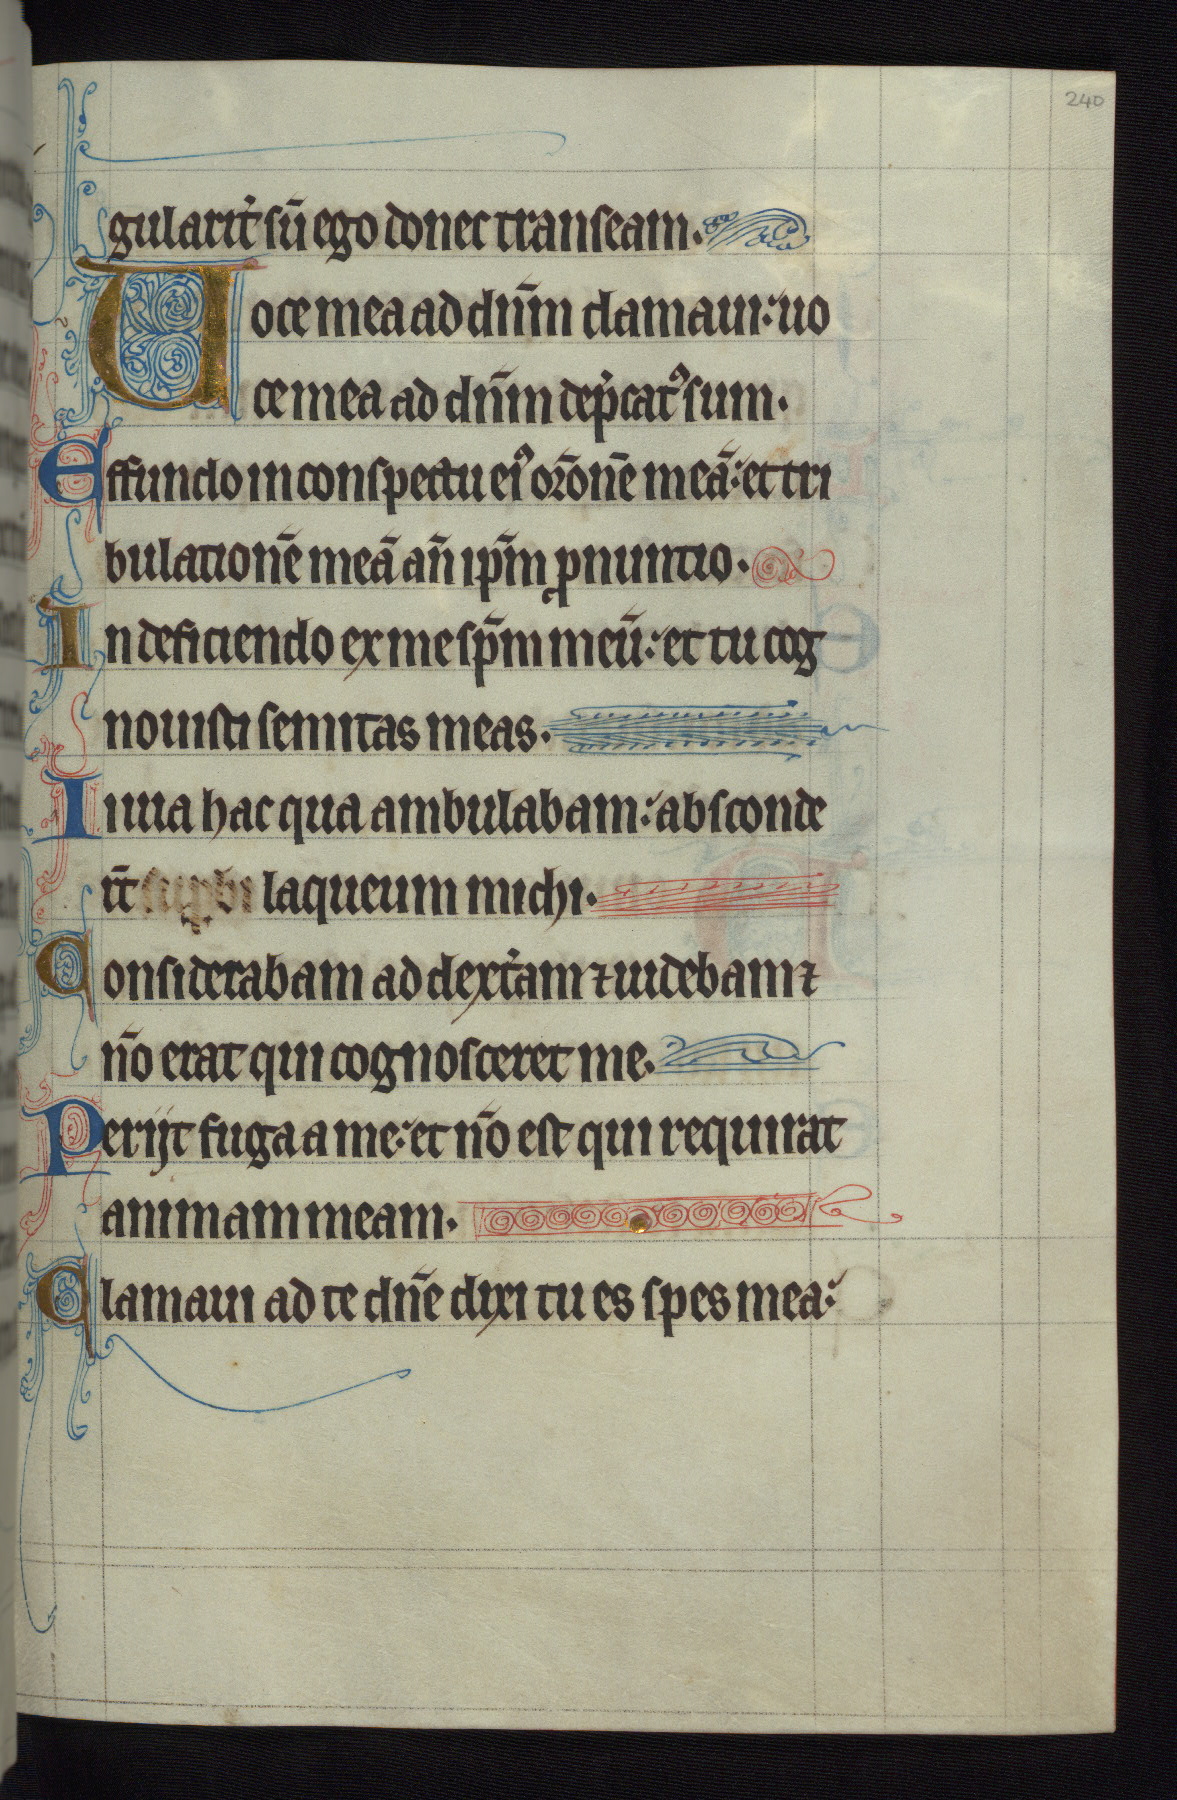 240
gularit̾ sū ego donec transeam.
Uoce mea ad dn̄m clamaui: uo
ce mea ad dn̄m dep̾catꝰ sum.
Effundo in conspectu eiꝰ orōnē meā: et tri
bulationē meā an̄ ip̄m ꝓnuntio.
In deficiendo ex me sp̄m meū: et tu cog
nouisti semitas meas.
In uia hac qua ambulabam: absconde
rt̄ suꝑbi laqueum michi.
Considerabam ad dext̾am ⁊ uidebam ⁊
nō erat qui cognosceret me.
Perijt fuga a me: et nō est qui requirat
animam meam.
Clamaui ad te dn̄e dixi tu es spes mea: